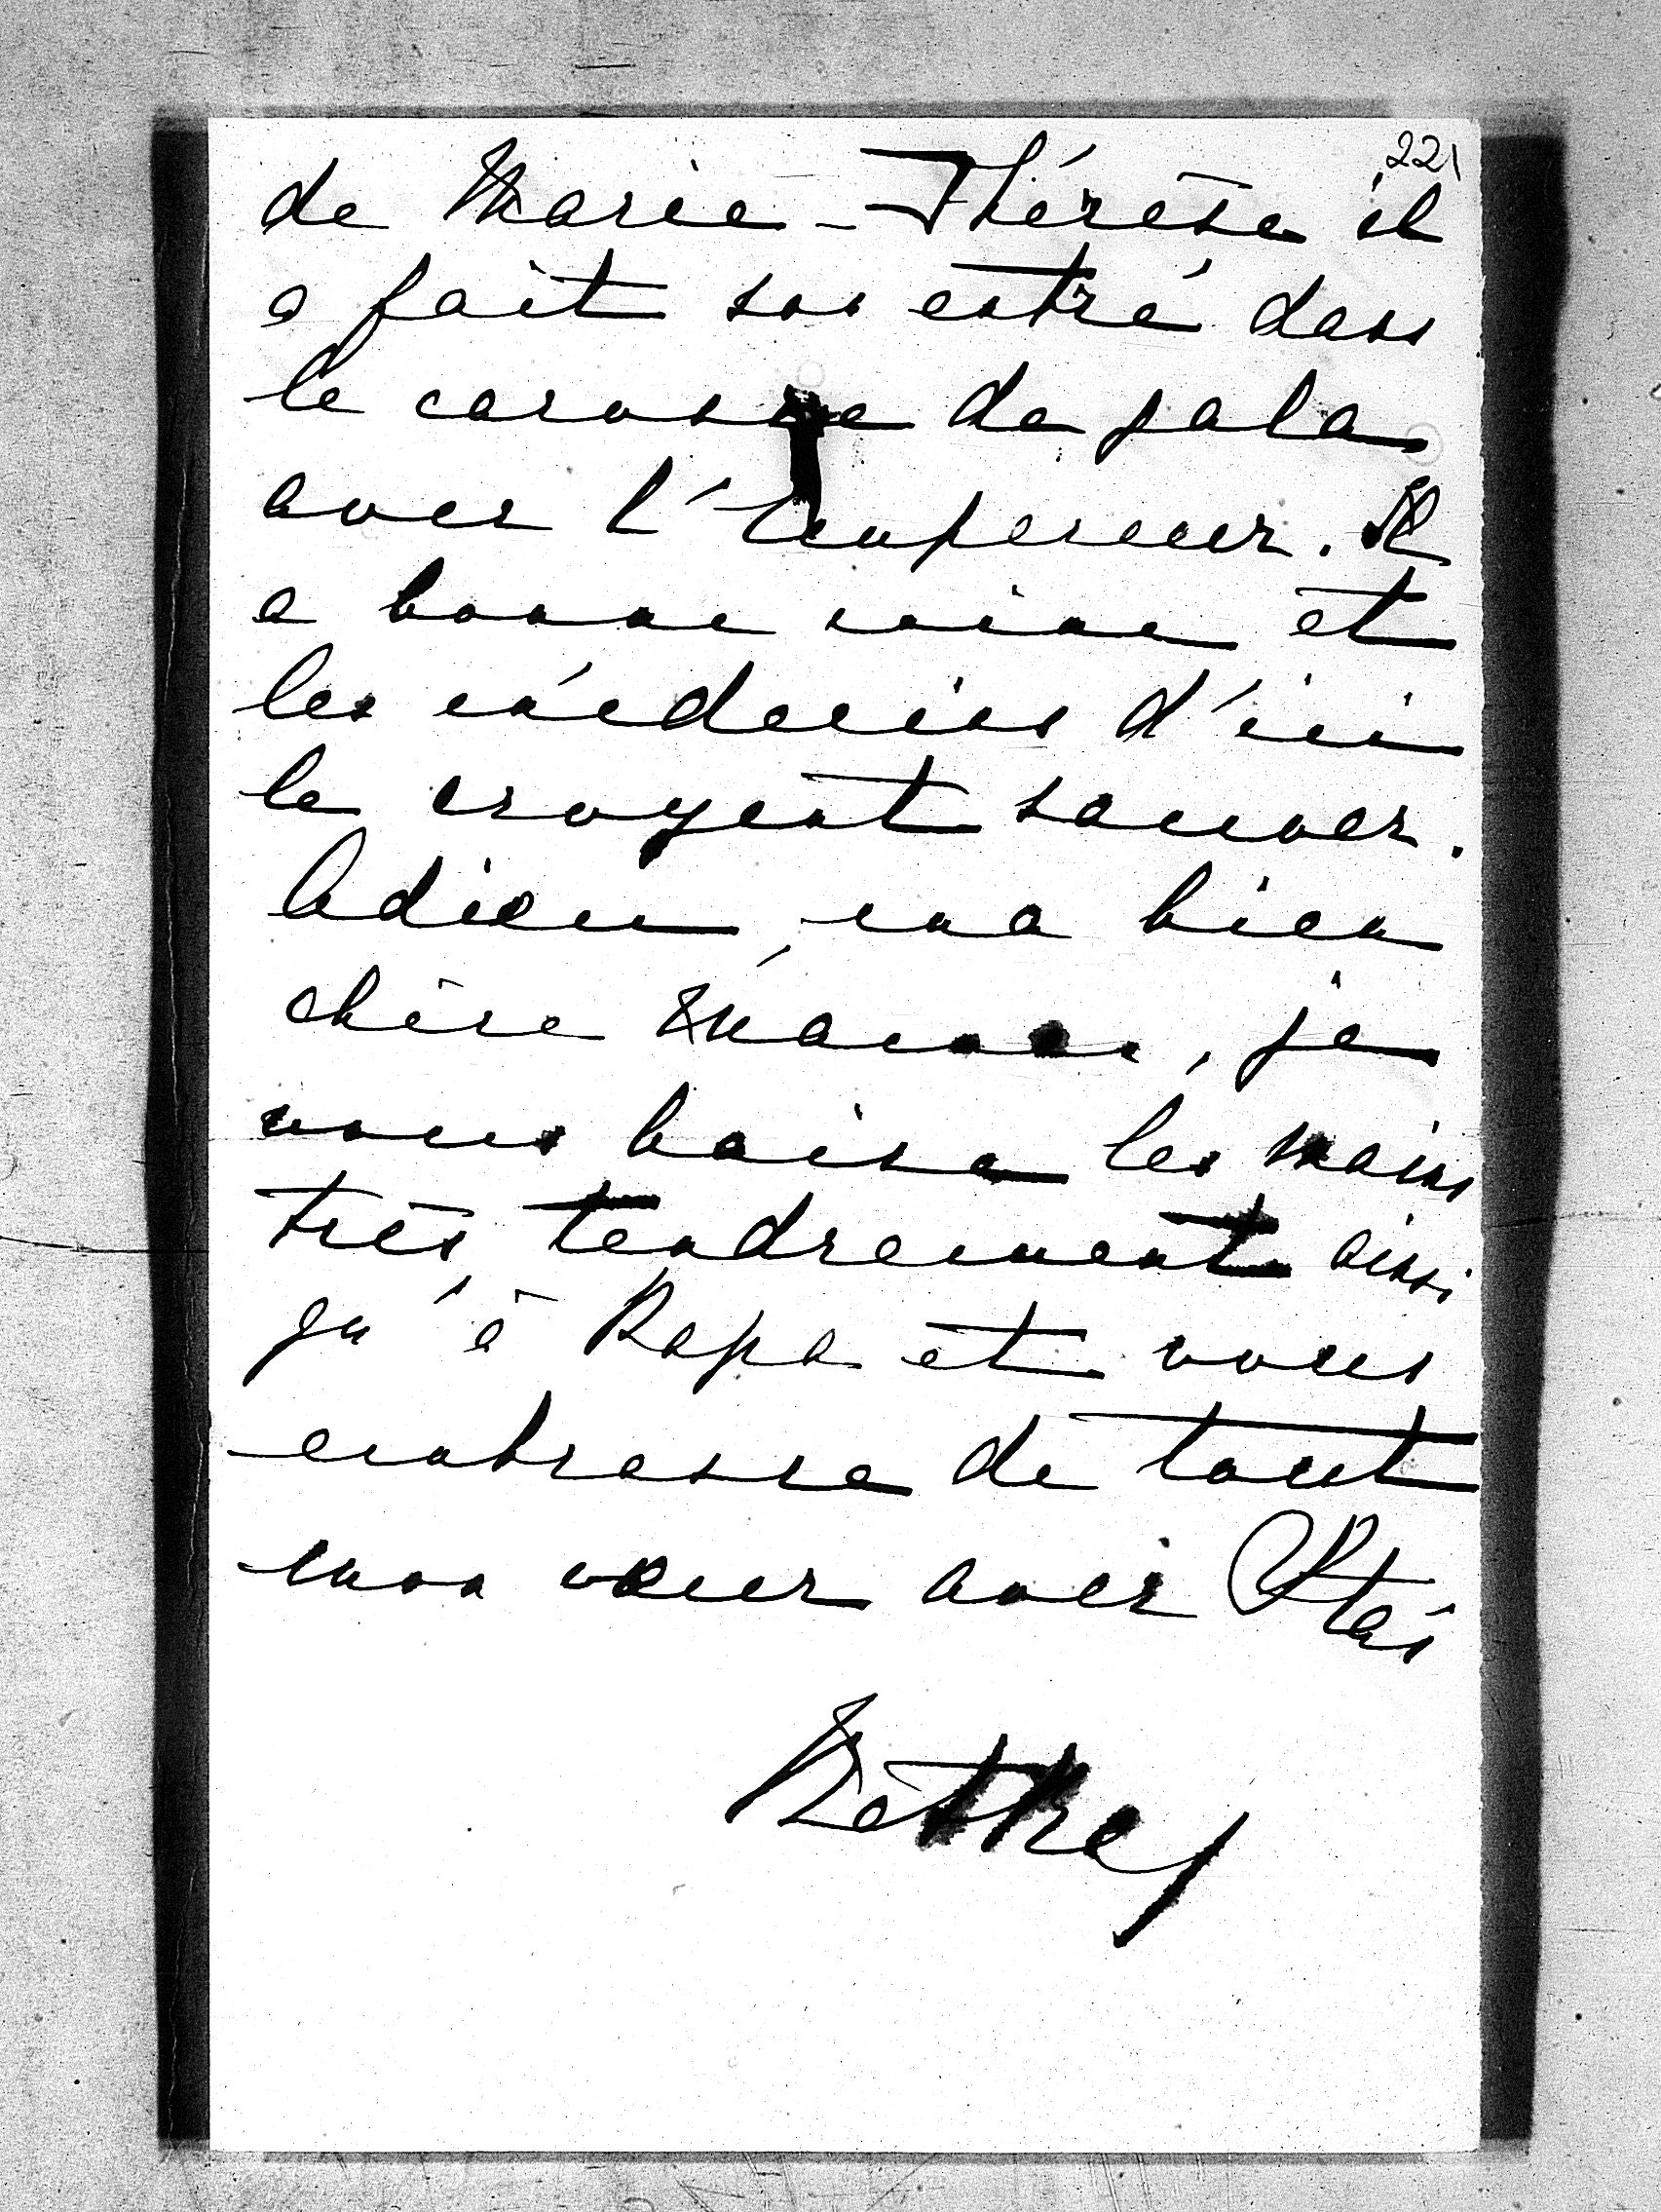 221
de Marie-Thérèse il
a fait son entré dans
le carosse de gala
avec l'Empereur. Il
a bonne mine et
les médecins d'ici
le croyent sauver.
Adieu, ma bien
chère Maman, je
vous baise les mains
très tendrement ainsi
qu'à Papa et vous
embrasse de tout
mon cœur avec